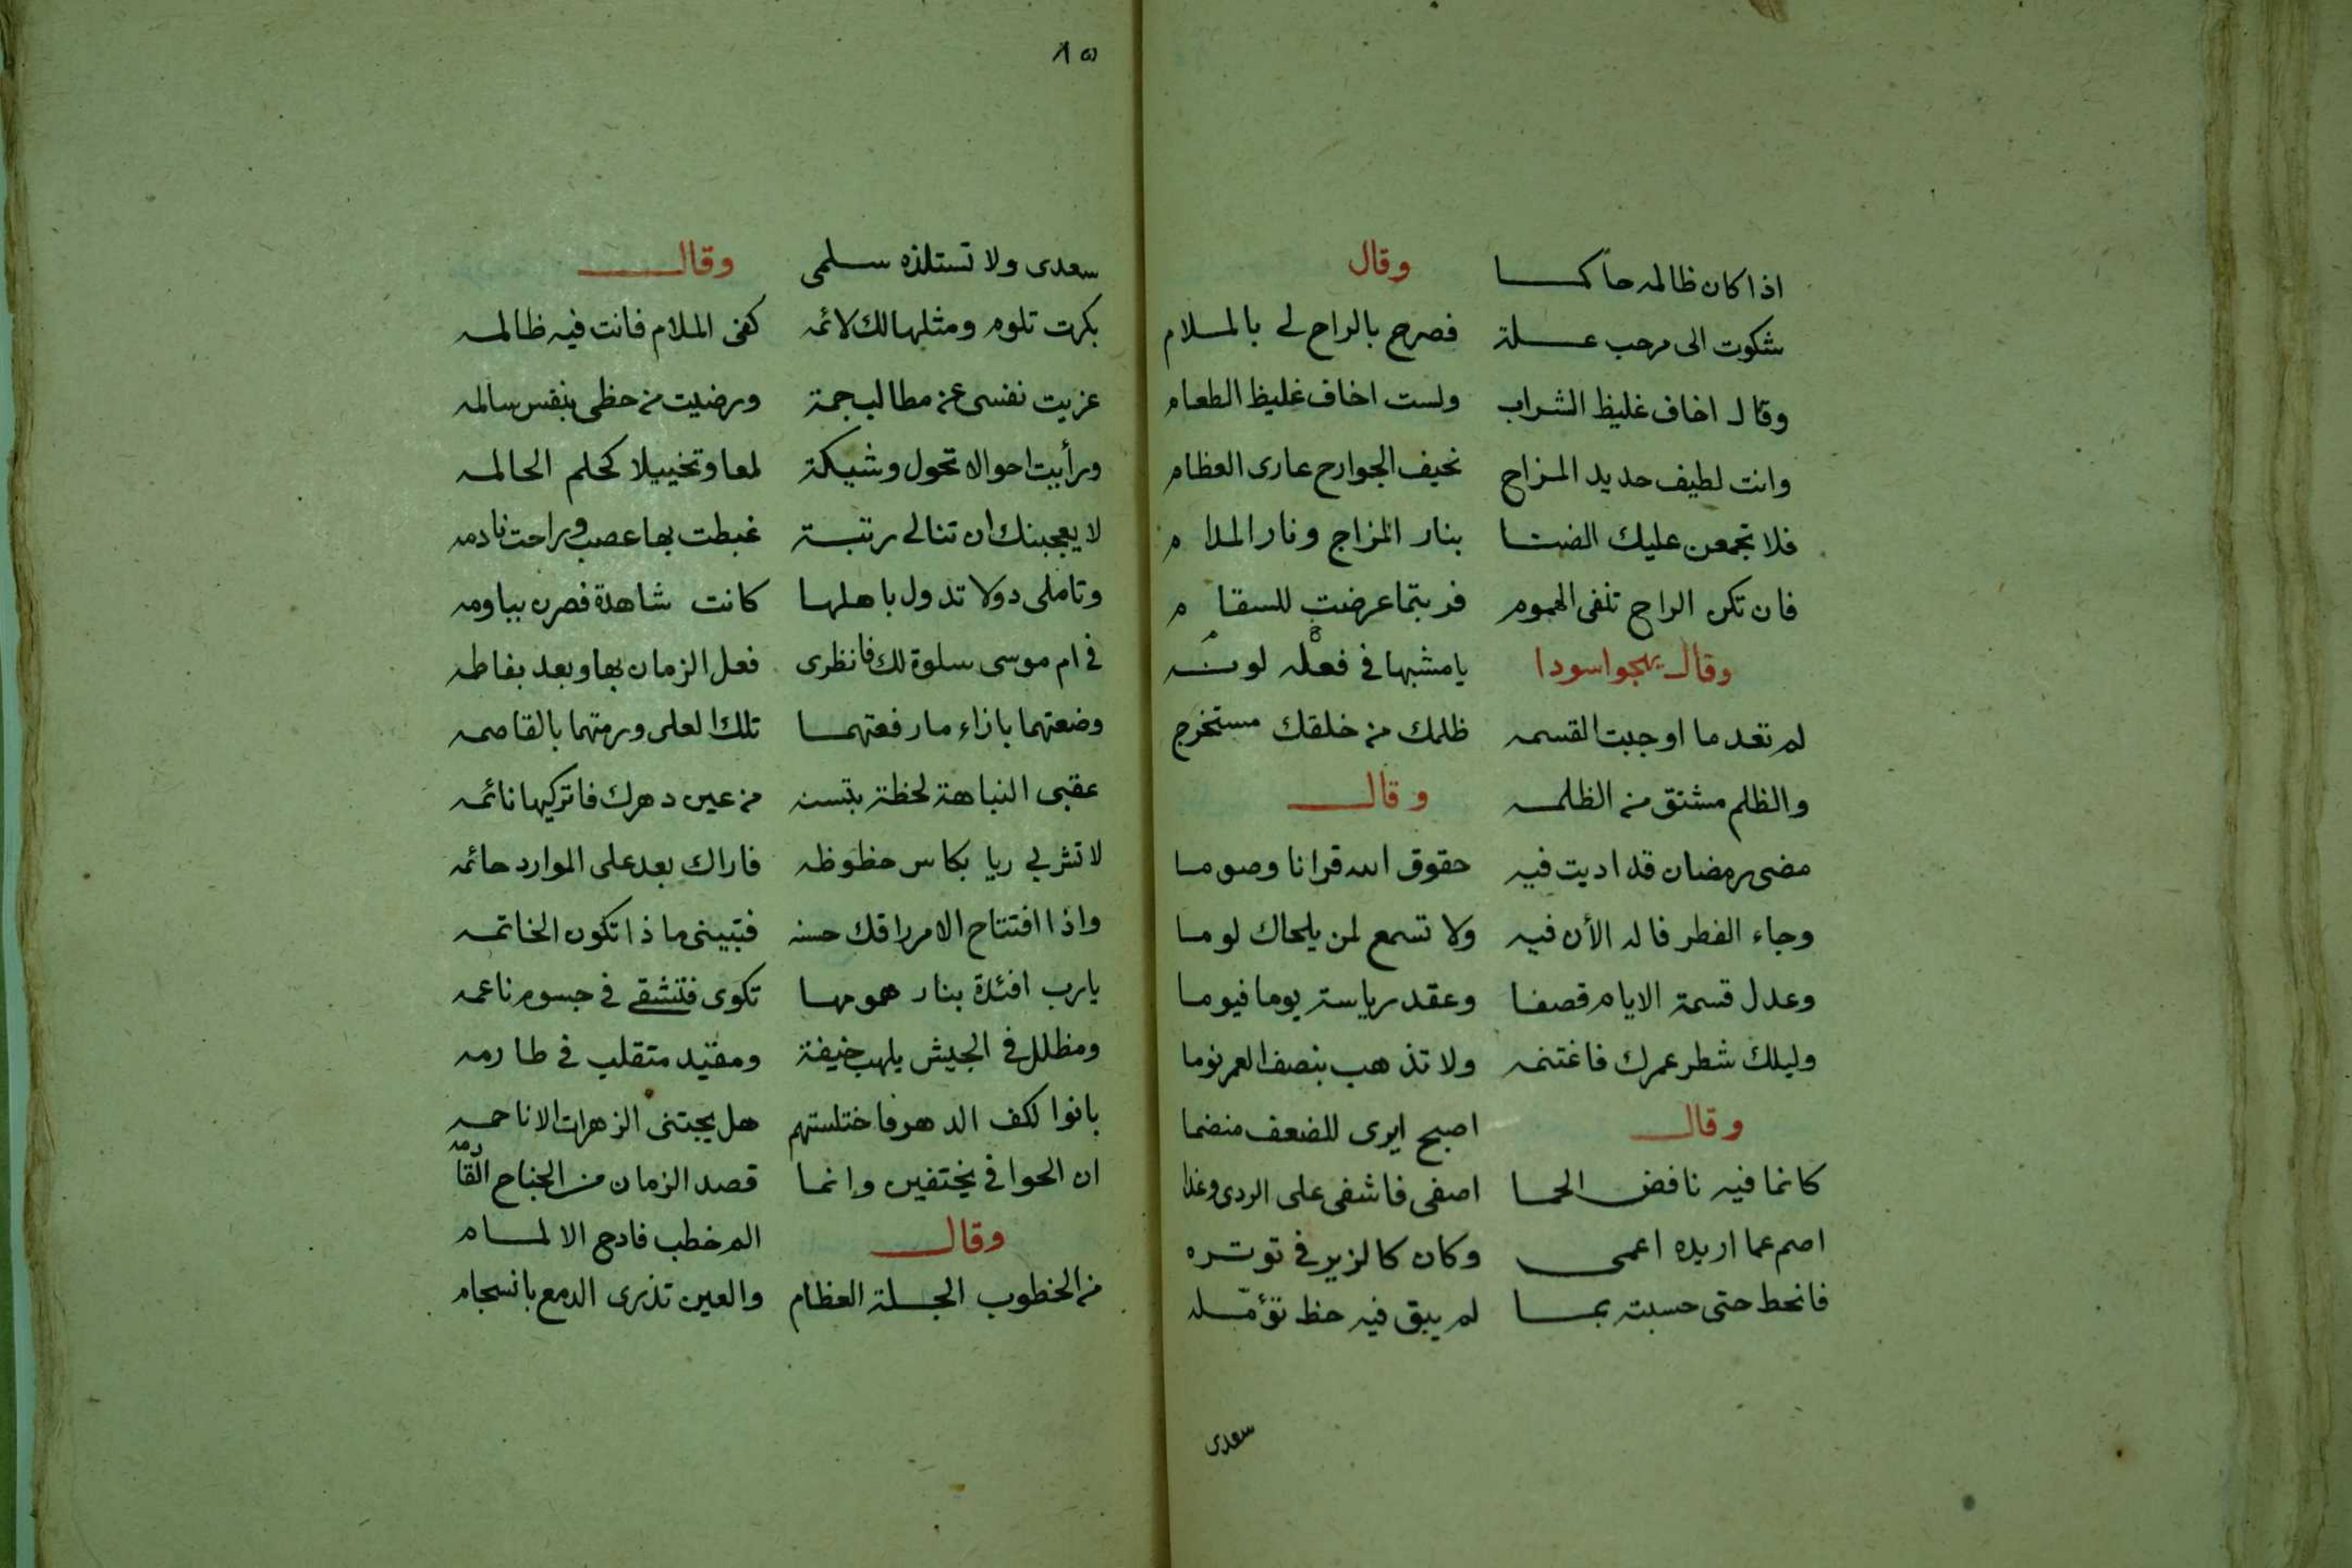 اذا كان ظالمه حاكما وقال
شكوت الى مرحب علة فصرح بالراح لى بالملام
وقال اخاف غليظ الشراب ولست اخاف غليظ الطعام
وانت لطيف حديد المزاج نحيف الجوارح عارى العظام
فلا تجمعن عليك الضنا بنار المزاج ونار المدام
فان تكن الراح تنفى الهموم فربتما عرضت للسقام
وقال يهجو اسودا يا مشبها فى فعله لونه
لم تعد ما اوجبت القسمه ظلمك من خلقك مستخرج
والظلم مشتق من الظلمه وقال
مضى رمضان قد اديت فيه حقوق الله قرانا وصوما
وجاء الفطر فاله الأن فيه ولا تسمع لمن يلحاك لوما
وعدل قسمة الايام قصفا وعقد رياسة يوما فيوما
وليلك شطر عمرك فاغتنمه ولا تذهب بنصف العمر نوما
وقال اصبح ايرى للضعف منضما
كانما فيه نافض الحما اصفى فاشفى على الردى وغدا
اصم عما اريده اعمى وكان كالزير فى توتره
فانحط حتى حسبته بما لم يبق فيه حظ تؤمّله
سعدى
٨٥
سعدى ولا تستلذه سلمى وقال
بكرت تلوم ومثلها لك لائمه كفى الملام فانت فيه ظالمه
عزيت نفسى عن مطالب جمة ورضيت من حظى بنفس سالمه
ورأيت احوالا تحول وشيكة لمعا وتخييلا كحلم الحالمه
لا يعجبنك ان تنالى رتبة غبطت بها عصب وراحت نادمه
وتاملى دولا تدول باهلها كانت شاهدة فصرن بياومه
فى ام موسى سلوة لك فانظرى فعل الزمان بها وبعد بفاطمه
وضعتهما بازاء ما رفعتهما تلك العلى ورمتهما بالقاصمه
عقبى النباهة لحظة من عين دهرك فاتركيها نائمه
لا تشربى ريا بكاس حظوظه فاراك بعد على الموارد حائمه
واذا افتتاح الامر راقك حسنه فتبينى ما ذا تكون الخاتمه
يارب افئدة بنار همومها تكوى فتشقى فى جسوم ناعمه
ومظلل فى الجيش يلهب خيفة ومقيد متقلب فى طارمه
بانوا لكف الدهر فاختلستهم هل يجتنى الزهرات الا ناحمه
ان الخوافى يختفين وانما قصد الزمان من الجناح القادمه
وقال الم خطب فادح الالمام
من الخطوب الجلة العظام والعين تذرى الدمع بانسجام